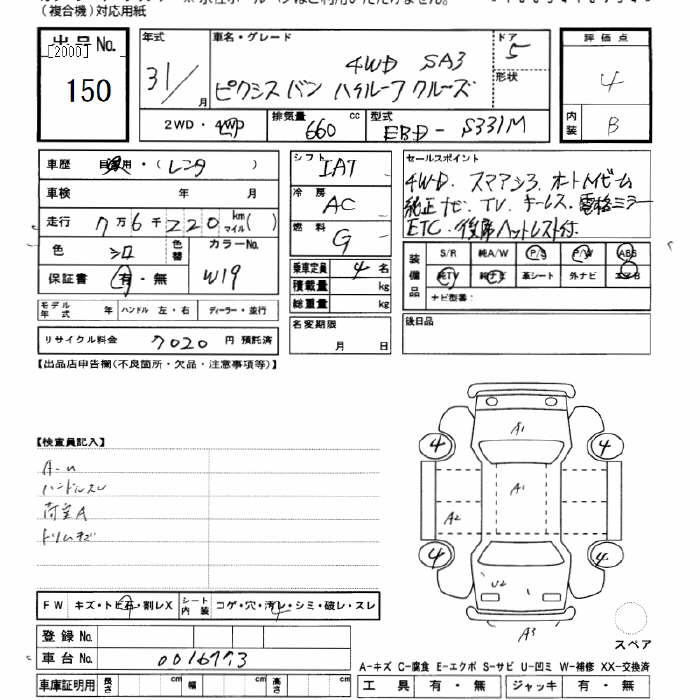 (複合機)対応用紙
出品No.
[2000]
150
年式
31/
月
車名・グレード
4WD SA3
ピクシスバン ハイルーフ クルーズ
ドア
5
形状
2WD・4WD
排気量
660
cc
型式
EBD-S331M
評価点
4
内装
B
車歴
自家用・(レンタ)
車検
年 月
走行
7万6千220
km
マイル
( )
色
シロ
色替
カラーNo.
W19
保証書
有・無
モデル年式
年
ハンドル 左・右
ディーラー・並行
リサイクル料金
7020
円 預託済
シフト
IAT
冷房
AC
燃料
G
乗車定員
4
名
積載量
kg
総重量
kg
名変期限
月 日
セールスポイント
4WD. スマアシ3. オートハイビーム
純正ナビ. TV. キーレス. 電格ミラー
ETC. 後席ヘッドレスト付.
装備品
S/R
純A/W
P/S
P/W
ABS
純TV
純ナビ
革シート
外ナビ
エアB
ナビ型番:
後日品
【出品店申告欄(不良箇所・欠品・注意事項等)】
【検査員記入】
A-U
ハンドルスレ
荷室A
トリムキズ
FW
キズ・トビ石・割レX
シート内装
コゲ・穴・汚レ・シミ・破レ・スレ
登録No.
車台No.
0016773
車庫証明用
長さ
cm
幅
cm
高さ
cm
A1
4
4
A1
A2
4
4
U2
A3
スペア
A-キズ C-腐食 E-エクボ S-サビ U-凹ミ W-補修 XX-交換済
工具
有・無
ジャッキ
有・無